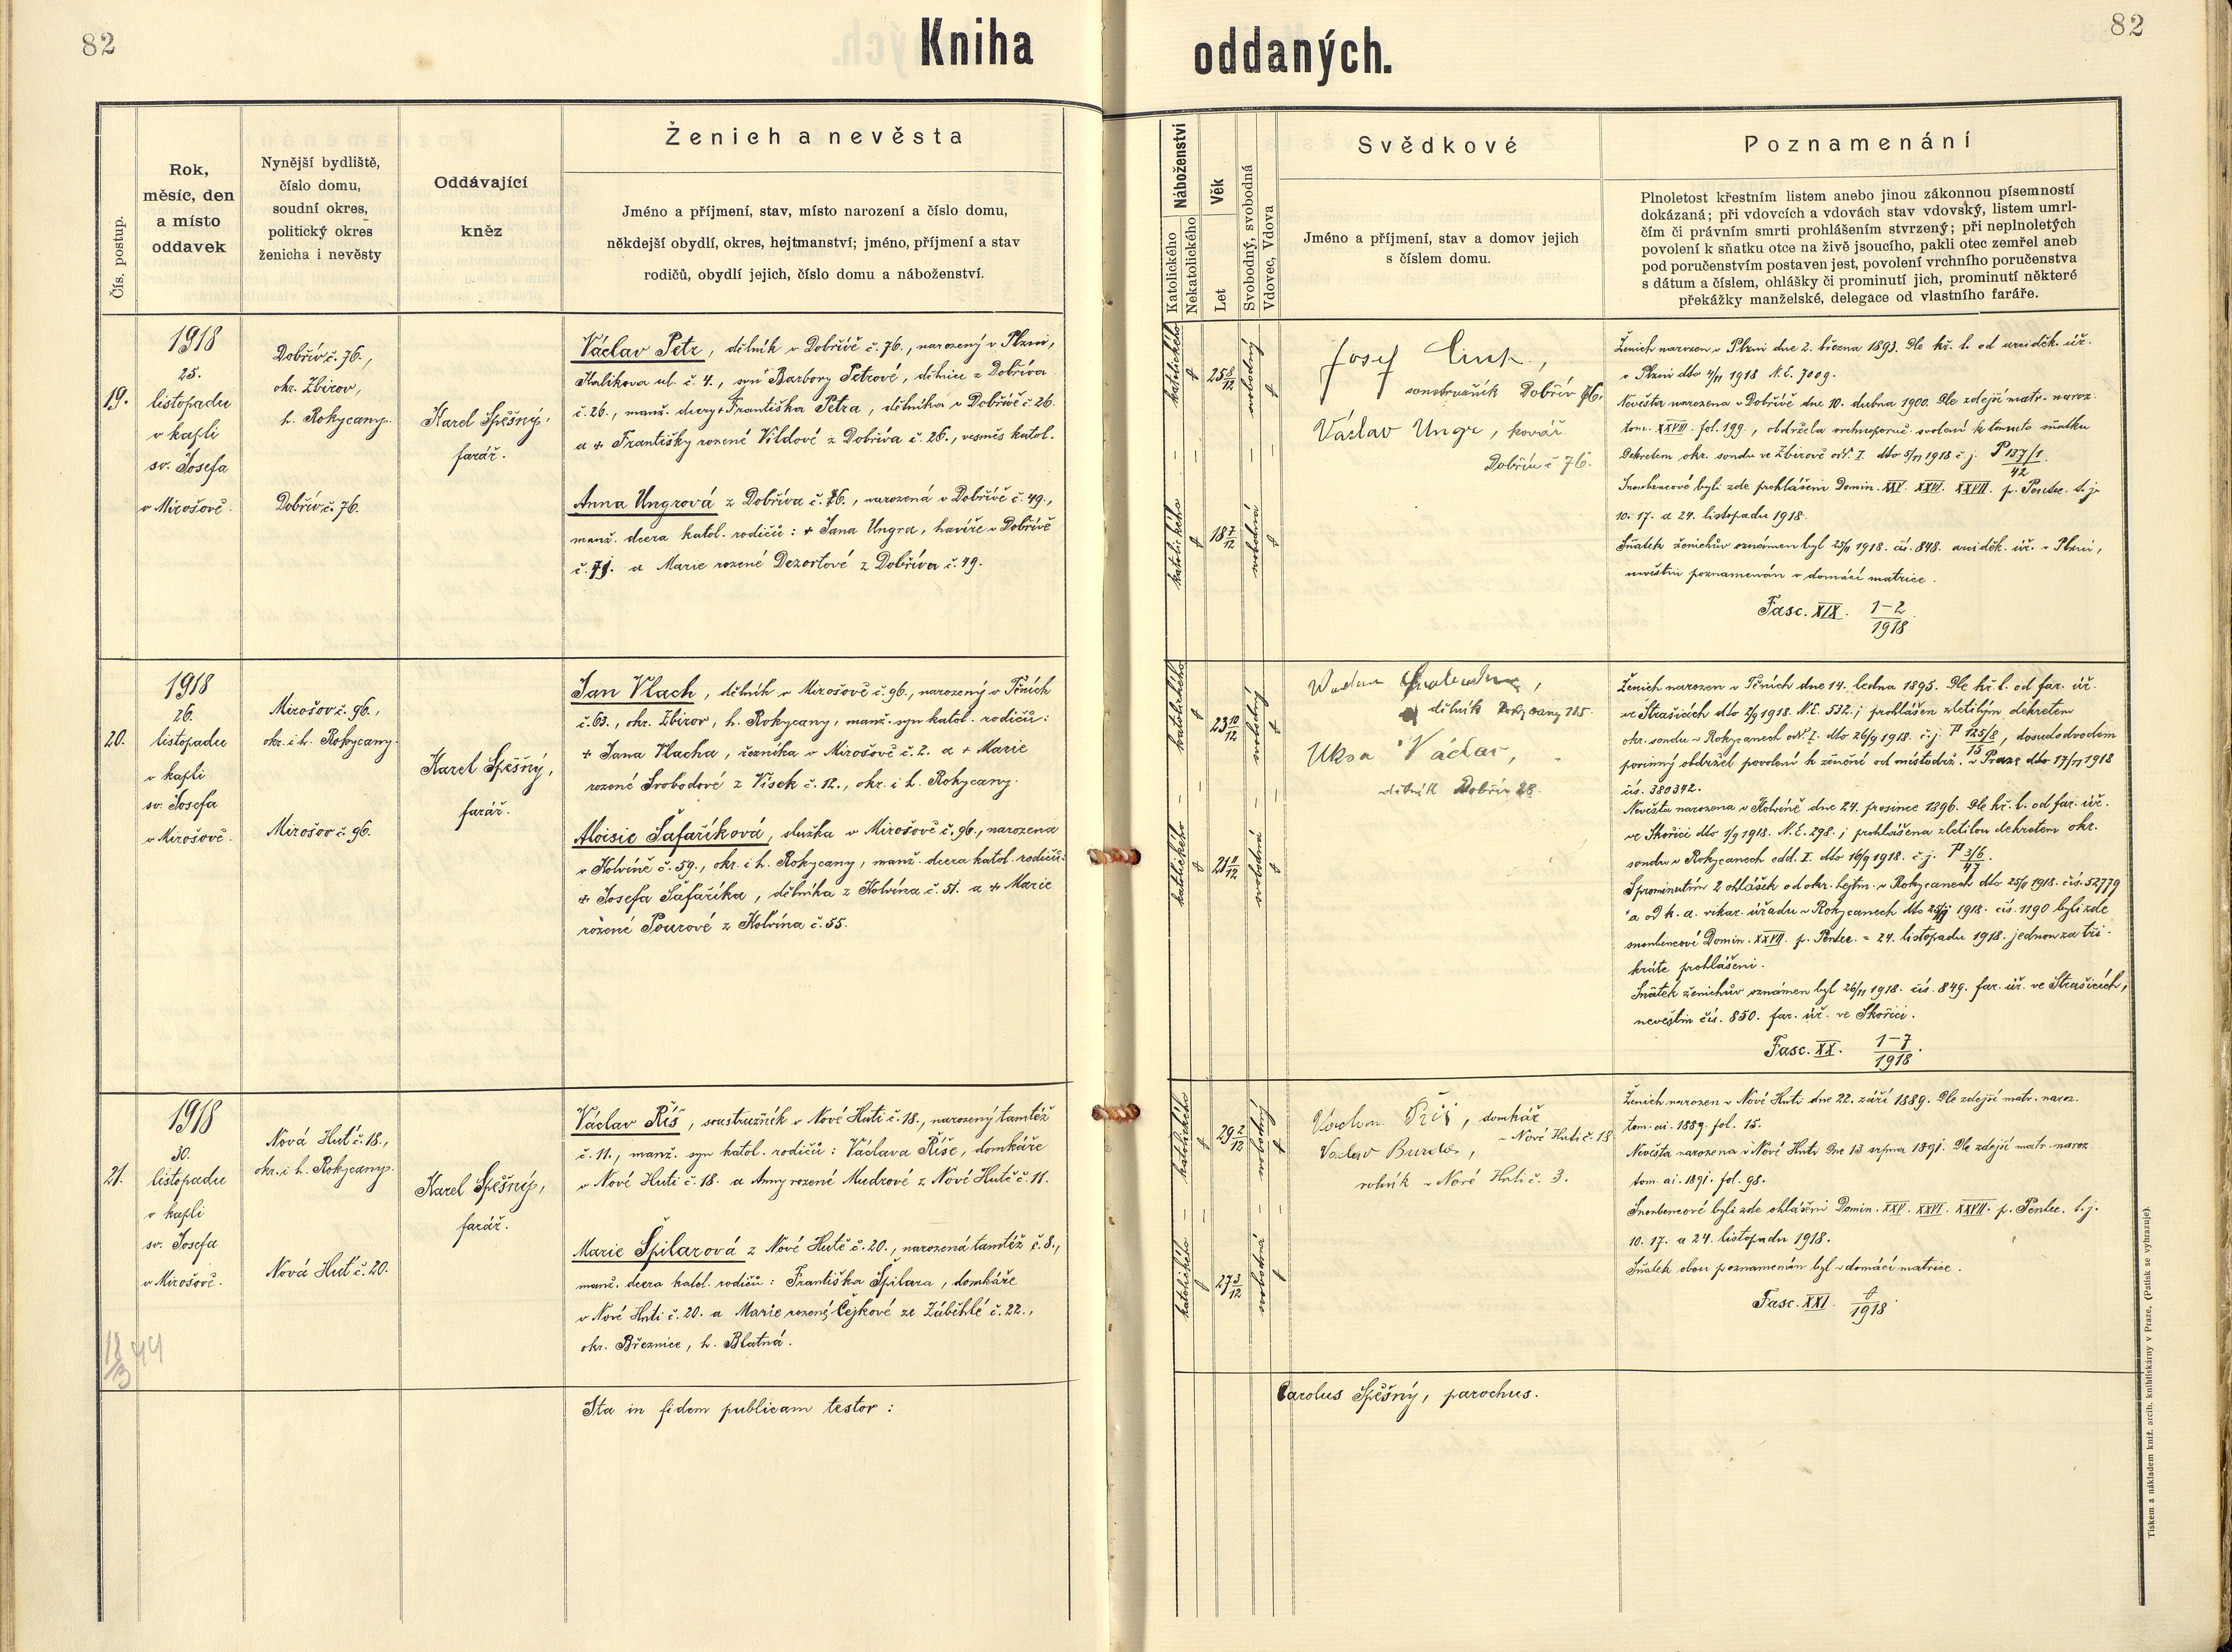 82
Kniha
oddaných.
82
Čís. postup.
Rok,
měsíc, den
a místo
oddavek
Nynější bydliště,
číslo domu,
soudní okres,
politický okres
ženicha i nevěsty
Oddávající
kněz
Ženich a nevěsta
Jméno a příjmení, stav, místo narození a číslo domu,
někdejší obydlí, okres, hejtmanství; jméno, příjmení a stav
rodičů, obydlí jejich, číslo domu a náboženství.
Náboženství
Katolického
Nekatolického
Věk
Let
Svobodný, svobodná
Vdovec, Vdova
Svědkové
Jméno a příjmení, stav a domov jejich
s číslem domu.
Poznamenání
Plnoletost křestním listem anebo jinou zákonnou písemností
dokázaná; při vdovcích a vdovách stav vdovský, listem umrl-
čím či právním smrti prohlášením stvrzený; při neplnoletých
povolení k sňatku otce na živě jsoucího, pakli otec zemřel aneb
pod poručenstvím postaven jest, povolení vrchního poručenstva
s dátum a číslem, ohlášky či prominutí jich, prominutí některé
překážky manželské, delegace od vlastního faráře.
19.
1918
25.
listopadu
v kapli
sv. Josefa
v Mirošově.
Dobřív č. 76.,
okr. Zbirov,
h. Rokycany.
Dobřív č. 76.
Karel Spěšný,
farář.
Václav Petr, dělník v Dobřívě č. 76., narozený v Plzni,
ul. č. 4., syn Barbory Petrové, dělnice z Dobříva
č. 26., manž. dcery + Františka Petra, dělníka v Dobřívě č. 26
a + Františky rozené Vildové z Dobříva č. 26., vesměs katol.
Anna Ungrová z Dobříva č. 76., narozená v Dobřívě č. 49.,
manž. dcera katol. rodičů: + Jana Ungra, havíře v Dobřívě
č. 71. a Marie rozené Dezortové z Dobříva č. 49.
katolického
25 8/12
svobodný
katolického
18 7/12
svobodná
Josef
soustružník Dobřív 76.
Václav Ungr, kovář
Dobřív č. 76.
Ženich narozen v Plzni dne 2. března 1893. Dle kř. l. od arciděk. úř.
v Plzni dto 4/11 1918 N.E. 7009.
Nevěsta narozena v Dobřívě dne 10. dubna 1900. Dle zdejší matr. naroz.
tom. XXVII. fol. 199., obdržela vrchnoporuč. svolení k tomuto sňatku
Dekretem okr. soudu ve Zbirově odd. I. dto 5/11 1918 č. j. P 137/1
42
Snoubencové byli zde prohlášeni Domin. XXV. XXVI. XXVII. p. Pentec. t. j.
10. 17. a 24. listopadu 1918.
Sňatek ženichův oznámen byl 25/11 1918. čís. 848. arciděk. úř. v Plzni,
nevěstin poznamenán v domácí matrice.
Fasc. XIX. 1-2
1918
20.
1918
26.
listopadu
v kapli
sv. Josefa
v Mirošově.
Mirošov č. 96.,
okr. i h. Rokycany.
Mirošov č. 96.
Karel Spěšný,
farář.
Jan Vlach, dělník v Mirošově č. 96., narozený v Těních
č. 63., okr. Zbirov, h. Rokycany, manž. syn katol. rodičů:
+ Jana Vlacha, řezníka v Mirošově č. 2. a + Marie
rozené Svobodové z Vísek č. 12., okr. i h. Rokycany.
Aloisie Šafaříková, služka v Mirošově č. 96., narozena
v Kolvíně č. 59., okr. i h. Rokycany, manž. dcera katol. rodičů:
+ Josefa Šafaříka, dělníka z Kolvína č. 51. a + Marie
rozené Pourové z Kolvína č. 55.
katolického
23 10/12
svobodný
katolického
21 11/12
svobodná
dělník Rokycany
Uksa Václav,
dělník Dobřív 28.
Ženich narozen v Těních dne 14. ledna 1895. Dle kř. l. od far. úř.
ve Strašicích dto 2/9 1918. N.E. 532.; prohlášen zletilým dekretem
okr. soudu v Rokycanech odd. I. dto 26/9 1918. č. j. P 125/8
15
povinný obdržel povolení k ženění od místodrž. v Praze dto 17/11 1918
čís. 380342.
Nevěsta narozena v Kolvíně dne 24. prosince 1896. Dle kř. l. od far. úř.
ve Skořici dto 1/9 1918. N.E. 298.; prohlášena zletilou dekretem okr.
soudu v Rokycanech odd. I. dto 16/9 1918. č. j. P 3/6
47
S prominutím 2 ohlášek od okr. hejtm. v Rokycanech dto 25/11 1918. čís. 52779
a od k. a. vikar. úřadu v Rokycanech dto 25/11 1918. čís. 1190 byli zde
snoubencové Domin. XXVII. p. Pentec. = 24. listopadu 1918. jednou za tři-
kráte prohlášeni.
Sňatek ženichův oznámen byl 26/11 1918. čís. 849. far. úř. ve Strašicích,
nevěstin čís. 850. far. úř. ve Skořici.
Fasc. XX. 1-7
1918.
21.
1918
30.
listopadu
v kapli
sv. Josefa
v Mirošově.
Nová Huť č. 18.,
okr. i h. Rokycany.
Nová Huť č. 20.
Karel Spěšný,
farář.
Václav Říš, soustružník v Nové Huti č. 18., narozený tamtéž
č. 11., manž. syn katol. rodičů: Václava Říše, domkáře
v Nové Huti č. 18. a Anny rozené Mudrové z Nové Hutě č. 11.
Marie Špilarová z Nové Hutě č. 20., narozená tamtéž č. 8.,
manž. dcera katol. rodičů: Františka Špilara, domkáře
v Nové Huti č. 20. a Marie rozené Čejkové ze Záběhlé č. 22.,
okr. Březnice, h. Blatná.
katolického
29 2/12
svobodný
katolického
27 3/12
svobodná
Václav Říš, domkář
v Nové Huti č. 18
Václav Burda,
rolník v Nové Huti č. 3.
Ženich narozen v Nové Huti dne 22. září 1889. Dle zdejší matr. naroz.
tom. ai. 1889. fol. 15.
Nevěsta narozena v Nové Huti dne 13 srpna 1891. Dle zdejší matr. naroz.
tom. ai. 1891. fol. 98.
Snoubencové byli zde ohlášeni Domin. XXV. XXVI. XXVII. p. Pentec. t. j.
10. 17. a 24. listopadu 1918.
Sňatek obou poznamenán byl v domácí matrice.
Fasc. XXI.
1918.
18/3 44
Ita in fidem publicam testor:
Carolus Spěšný, parochus.
Tiskem a nákladem kníž. arcib. knihtiskárny v Praze. (Patisk se vyhrazuje).